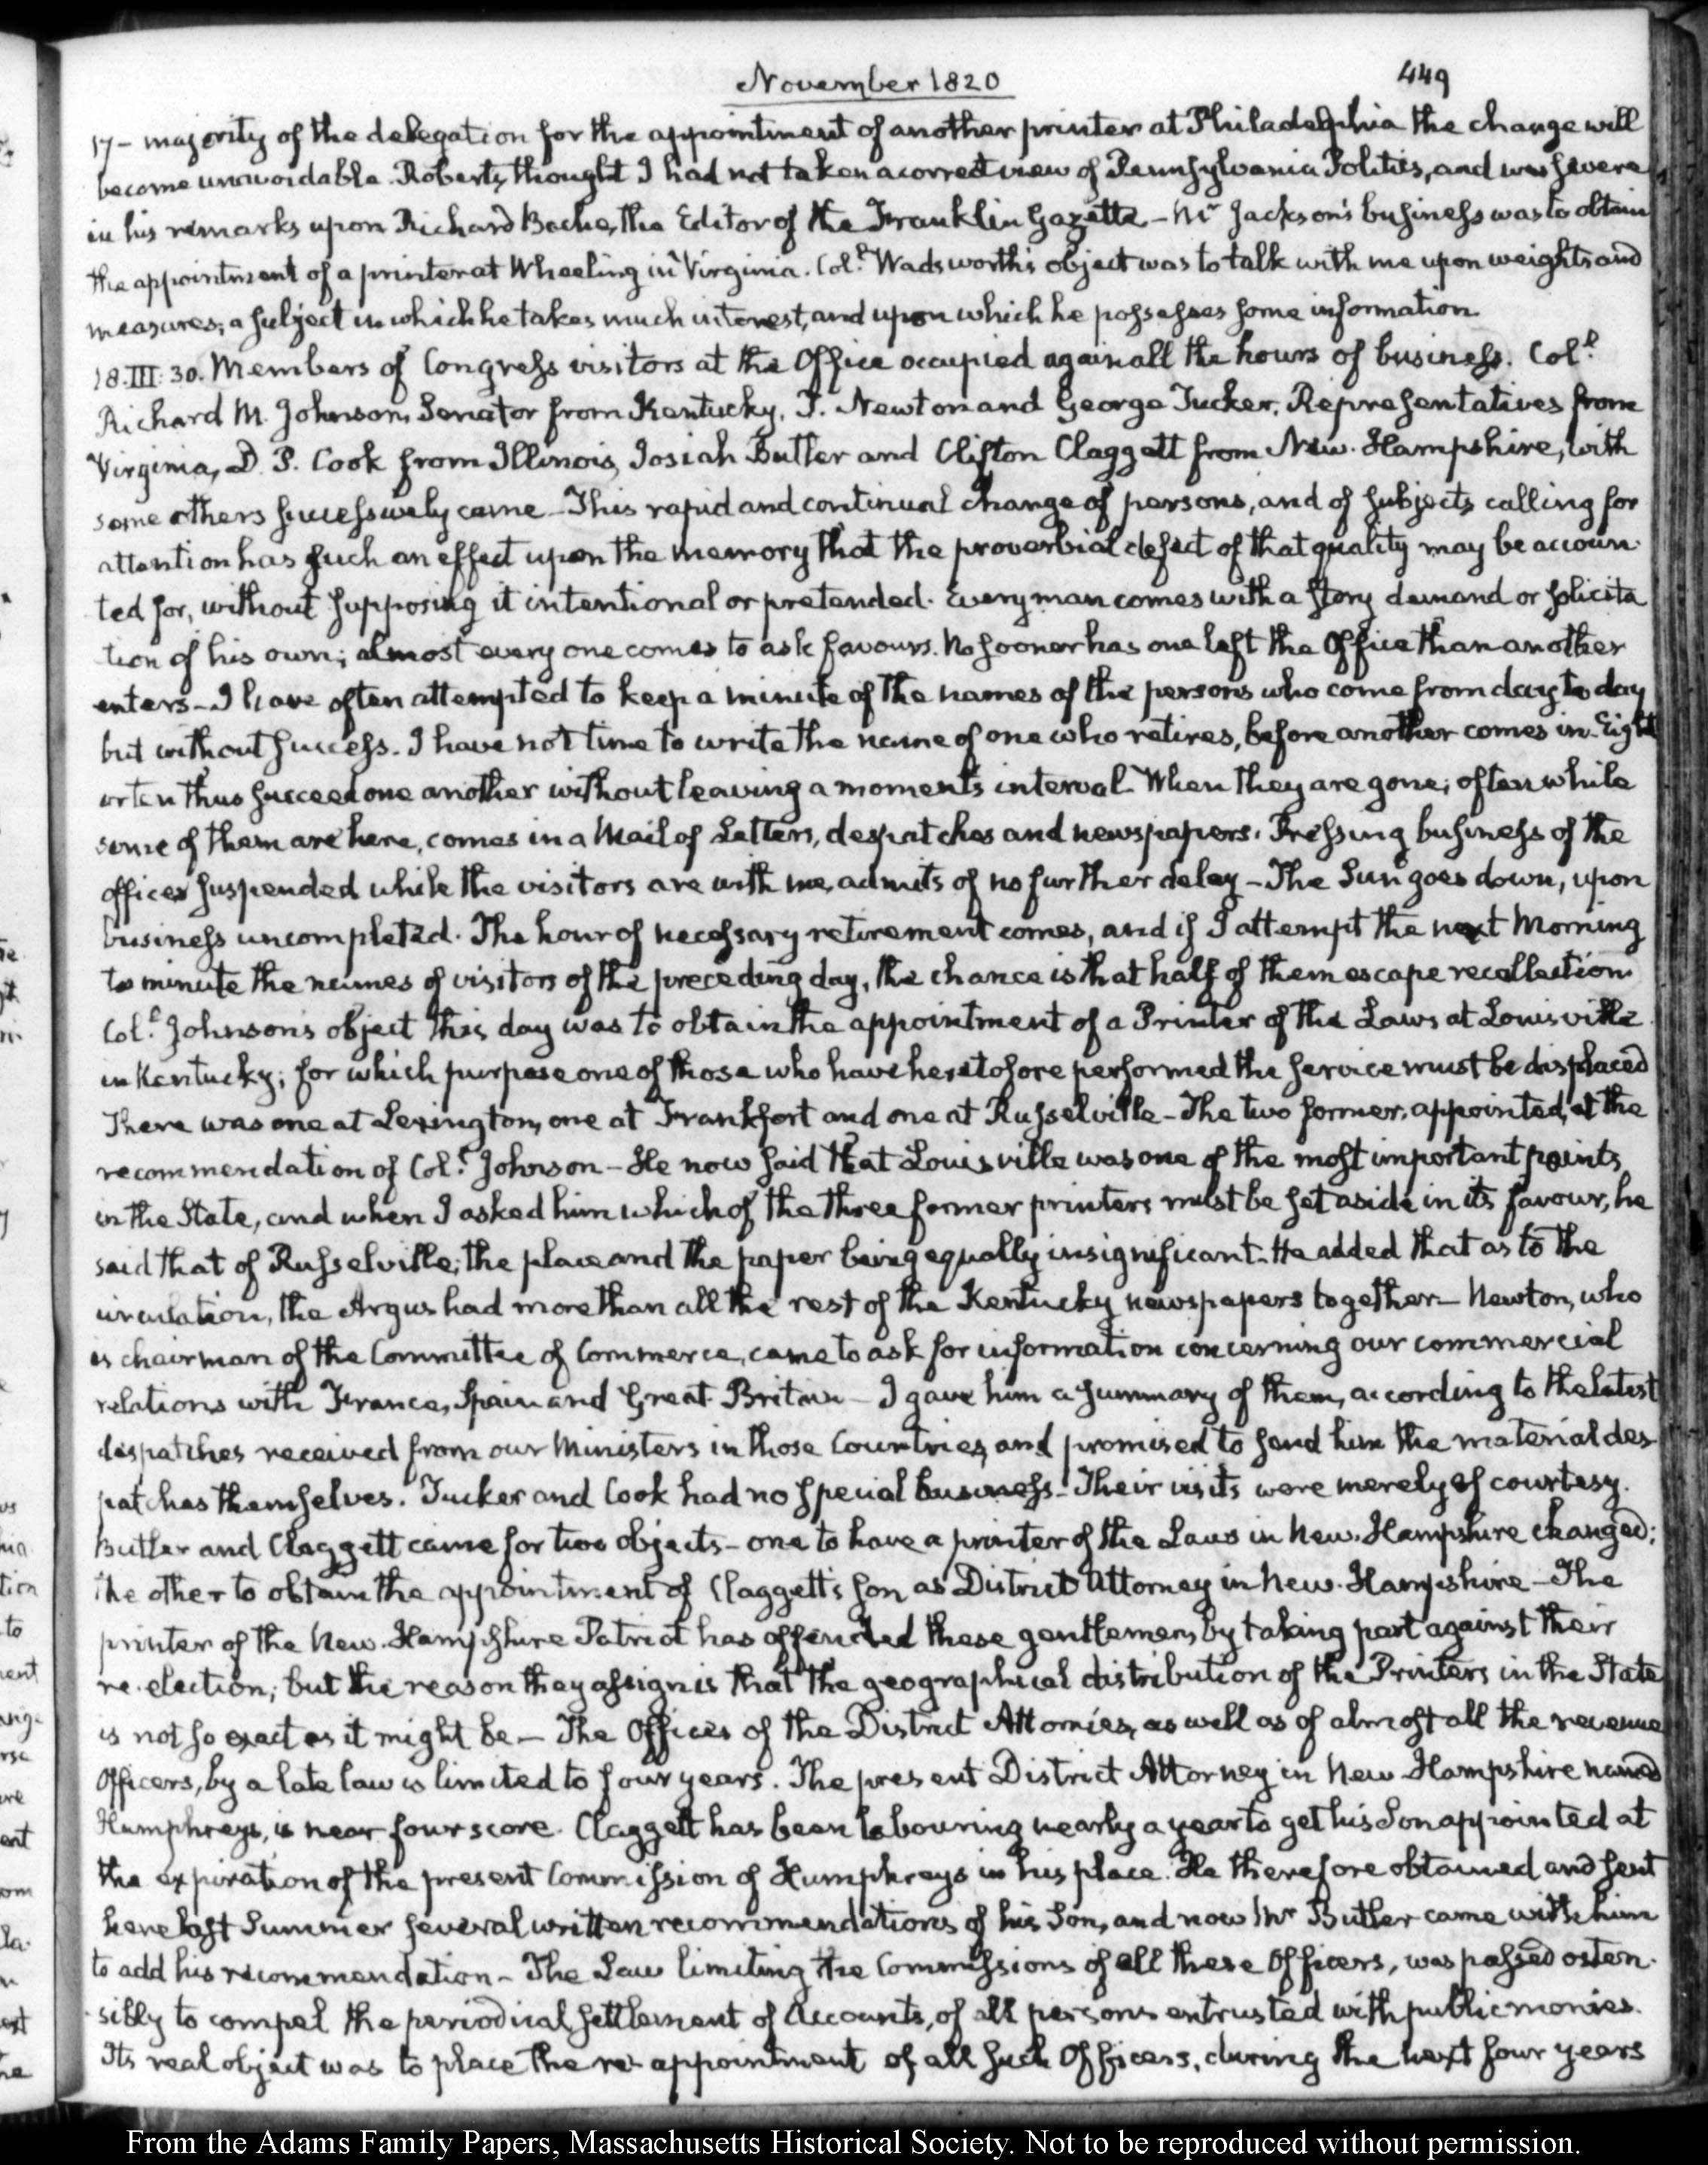 November 1820
449
17 - majority of the delegation for the appointment of another printer at Philadelphia the change will
become unavoidable. Roberts, thought I had not taken a correct view of Pennsylvania Politics, and was severe
in his remarks upon Richard Bache, the Editor of the Franklin Gazette - Mr Jackson's business was to obtain
the appointment of a printer at Wheeling in Virginia. Coll. Wadsworth's object was to talk with me upon weights and
measures; a subject in which he takes much interest, and upon which he possesses some information.
18. III: 30. Members of Congress visitors at the Office occupied again all the hours of business. Coll.
Richard M. Johnson, Senator from Kentucky, T. Newton and George Tucker, Representatives from
Virginia, D. P. Cook from Illinois, Josiah Butler and Clifton Claggett from New-Hampshire, with
some others successively came - This rapid and continual change of persons, and of subjects calling for
attention has such an effect upon the memory that the proverbial defect of that quality may be accoun-
ted for, without supposing it intentional or pretended. Every man comes with a story demand or solicita
tion of his own; almost every one comes to ask favours. No sooner has one left the Office than another
enters - I have often attempted to keep a minute of the names of the persons who come from day to day
but without success. I have not time to write the name of one who retires, before another comes in. Eight
or ten thus succeed one another without leaving a moment's interval. When they are gone; often while
some of them are here, comes in a Mail of Letters, despatches and newspapers. Pressing business of the
office suspended while the visitors are with me, admits of no further delay - The Sun goes down, upon
business uncompleted. The hour of necessary retirement comes, and if I attempt the next Morning
to minute the names of visitors of the preceding day, the chance is that half of them escape recollection.
Coll. Johnson's object this day was to obtain the appointment of a Printer of the Laws at Louisville
in Kentucky; for which purpose one of those who have heretofore performed the service must be displaced
There was one at Lexington, one at Frankfort and one at Russelville - The two former, appointed, at the
recommendation of Coll. Johnson - He now said that Louisville was one of the most important points
in the State, and when I asked him which of the three former printers must be set aside in its favour, he
said that of Russelville; the place and the paper being equally insignificant. He added that as to the
circulation, the Argus had more than all the rest of the Kentucky newspapers together - Newton, who
is chairman of the Committee of Commerce, came to ask for information concerning our commercial
relations with France, Spain and Great-Britain - I gave him a summary of them, according to the latest
dispatches received from our Ministers in those Countries, and promised to send him the material des
patches themselves. Tucker and Cook had no special business - Their visits were merely of courtesy.
Butler and Claggett came for two objects - one to have a printer of the Laws in New-Hampshire changed:
the other to obtain the appointment of Claggett's son as District Attorney in New-Hampshire - The
printer of the New-Hampshire Patriot has offended these gentlemen, by taking part against their
re-election; but the reason they assign is that the geographical distribution of the Printers in the State
is not so exact as it might be - The Offices of the District Attornies, as well as of almost all the revenue
Officers, by a late law is limited to four years. The present District Attorney in New-Hampshire named
Humphreys, is near fourscore. Claggett has been labouring nearly a year to get his Son appointed at
the expiration of the present Commission of Humphreys in his place. He therefore obtained and sent
here last Summer several written recommendations of his Son, and now Mr Butler came with him
to add his recommendation - The Law limiting the Commissions of all these Officers, was passed osten-
sibly to compel the periodical settlement of Accounts, of all persons entrusted with public monies.
Its real object was to place the re-appointment of all such Officers, during the next four years
From the Adams Family Papers, Massachusetts Historical Society. Not to be reproduced without permission.